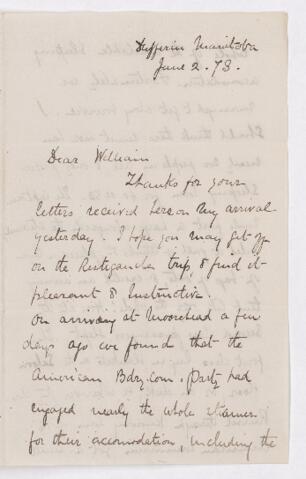 Dufferin Manitoba
June 2. 73.
Dear William
Thanks for your
letters received here on my arrival
yesterday. I hope you may get off
on the Restigouche trip, & find it
pleasant & Instructive.
On arriving at Moorehead a few
days ago we found that the
American Bdry. Com. Party had
engaged nearly the whole steamer
for their accomodation, including the